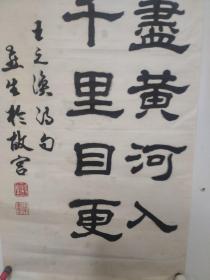 盡黃河入
千里目更
王之渙詩句
生於故宮